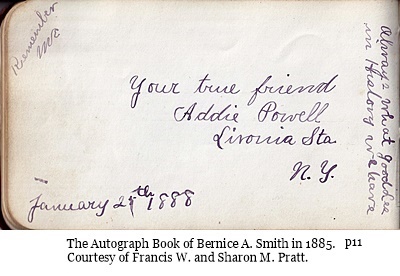 Remember
Me
Your true friend
Addie Powell
Livonia Sta.
N.Y.
January 27th 1888
Always what
in History we leave
The Autograph Book of Bernice A. Smith in 1885. p11
Courtesy of Francis W. and Sharon M. Pratt.